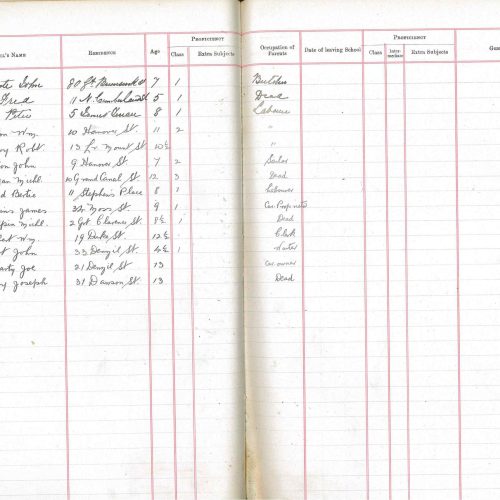 Proficiency Proficiency
l's Name Residence Age Class Extra Subjects Occupation of Parents Date of leaving School Class Inter-mediate Extra Subjects
John 80 Gt Brunswick St 7 1 Butcher
Fred 11 N. Cumberland St 5 1 Dead
Peter 5 1 Labourer
Wm. 10 Hanover St. 11 2 "
Robt. 13 Lr Mount St 10½ "
John 9 Hanover St. 7 2 Sailor
Michl. 10 Grand Canal St. 12 3 Dead
Bertie 11 Stephen's Place 8 1 Labourer
James Moss St. 9 1 Car Proprietor
Michl. 2 Gt Clarence St. 8½ 1 Dead
Wm. 19 Duke St. 12½ Clerk
John 33 Denzil St. 4½ 1
Joe 21 Denzil St. 13 Car owner
Joseph 31 Dawson St. 13 Dead